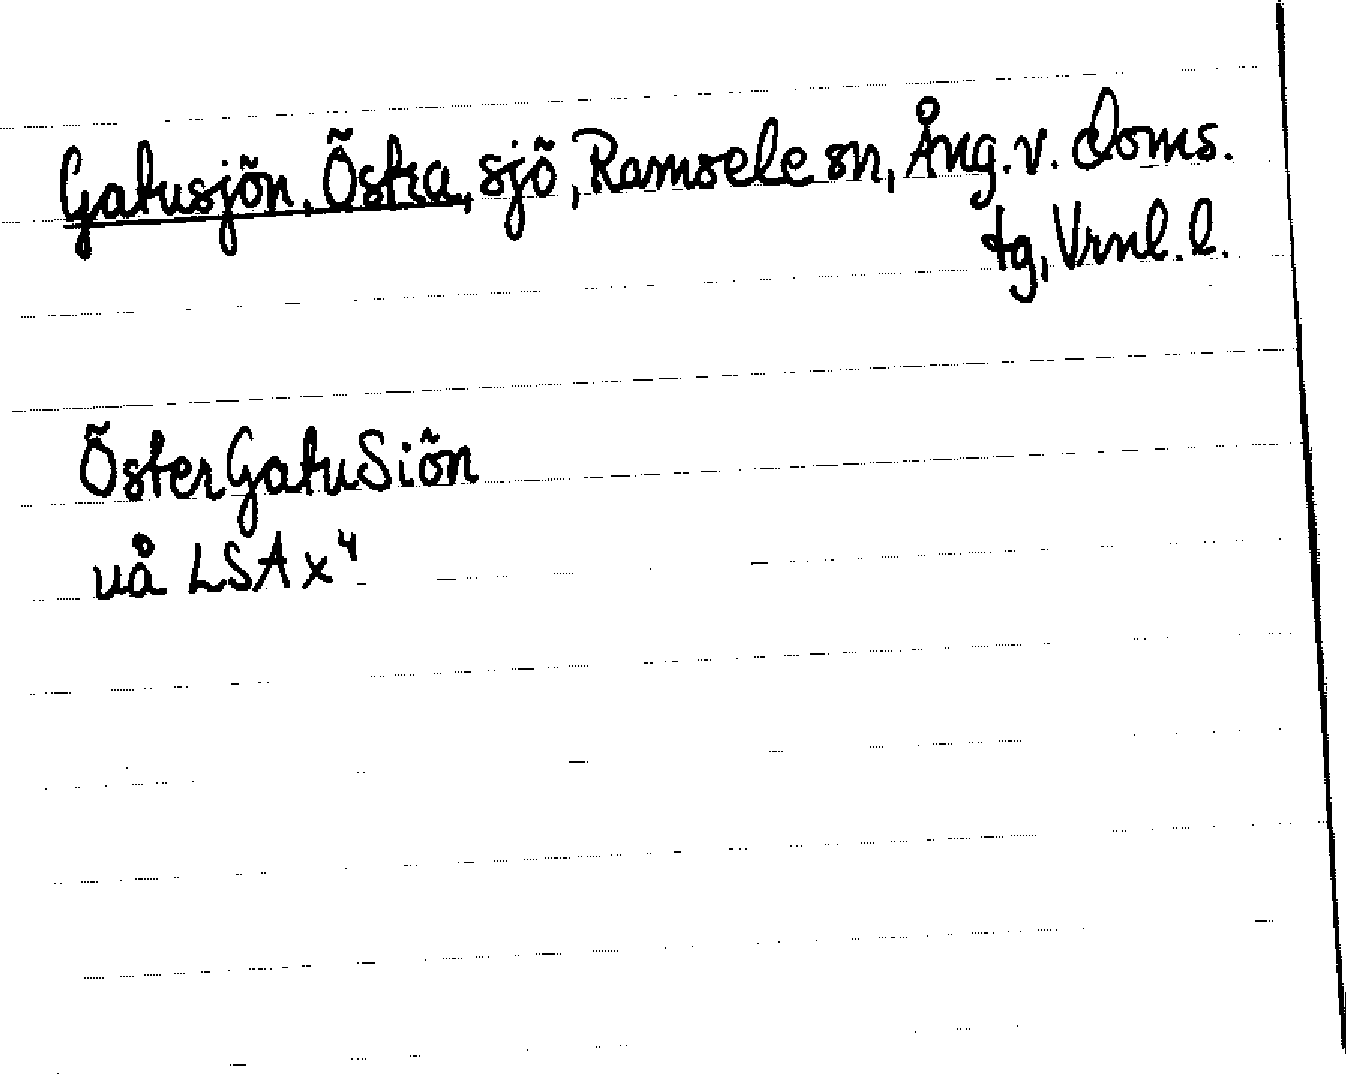 Gatusjön, Östra, sjö, Ramsele sn, Ång.v. Doms.
tg, Vrnl. l.
ÖsterGatuSiön
uå LSA x⁴